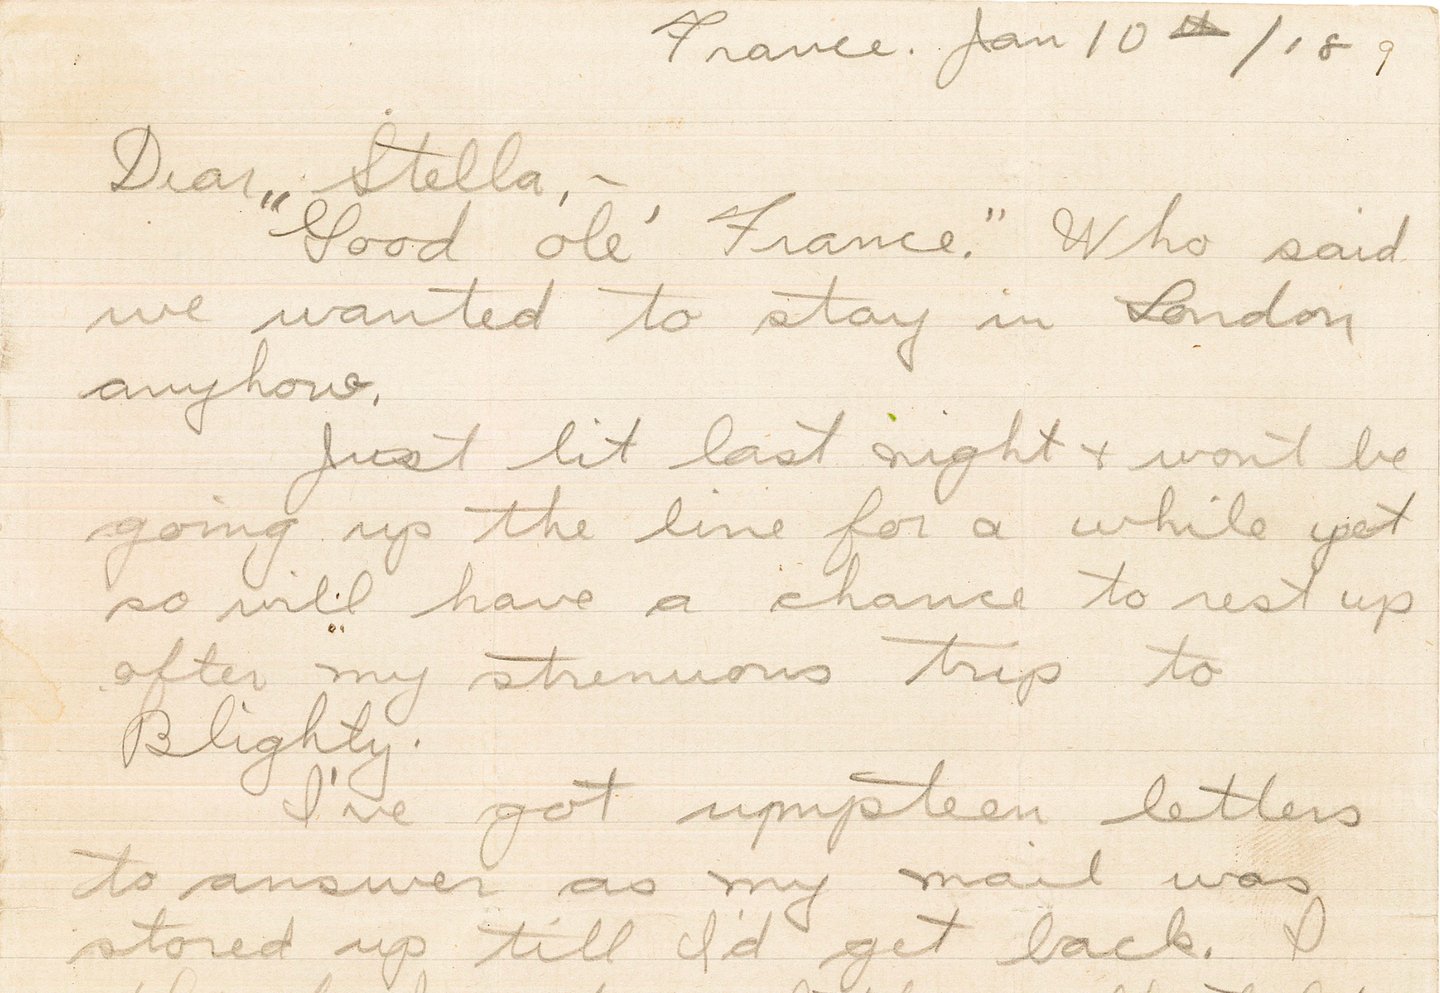 France. Jan 10th /18 9
Dear, Stella,-
"Good ole' France." Who said
we wanted to stay in London
anyhow.
Just lit last night + won't be
going up the line for a while yet
so will have a chance to rest up
after my strenuous trip to
Blighty.
I've got umpteen letters
to answer as my mail was
stored up till I'd get back. I